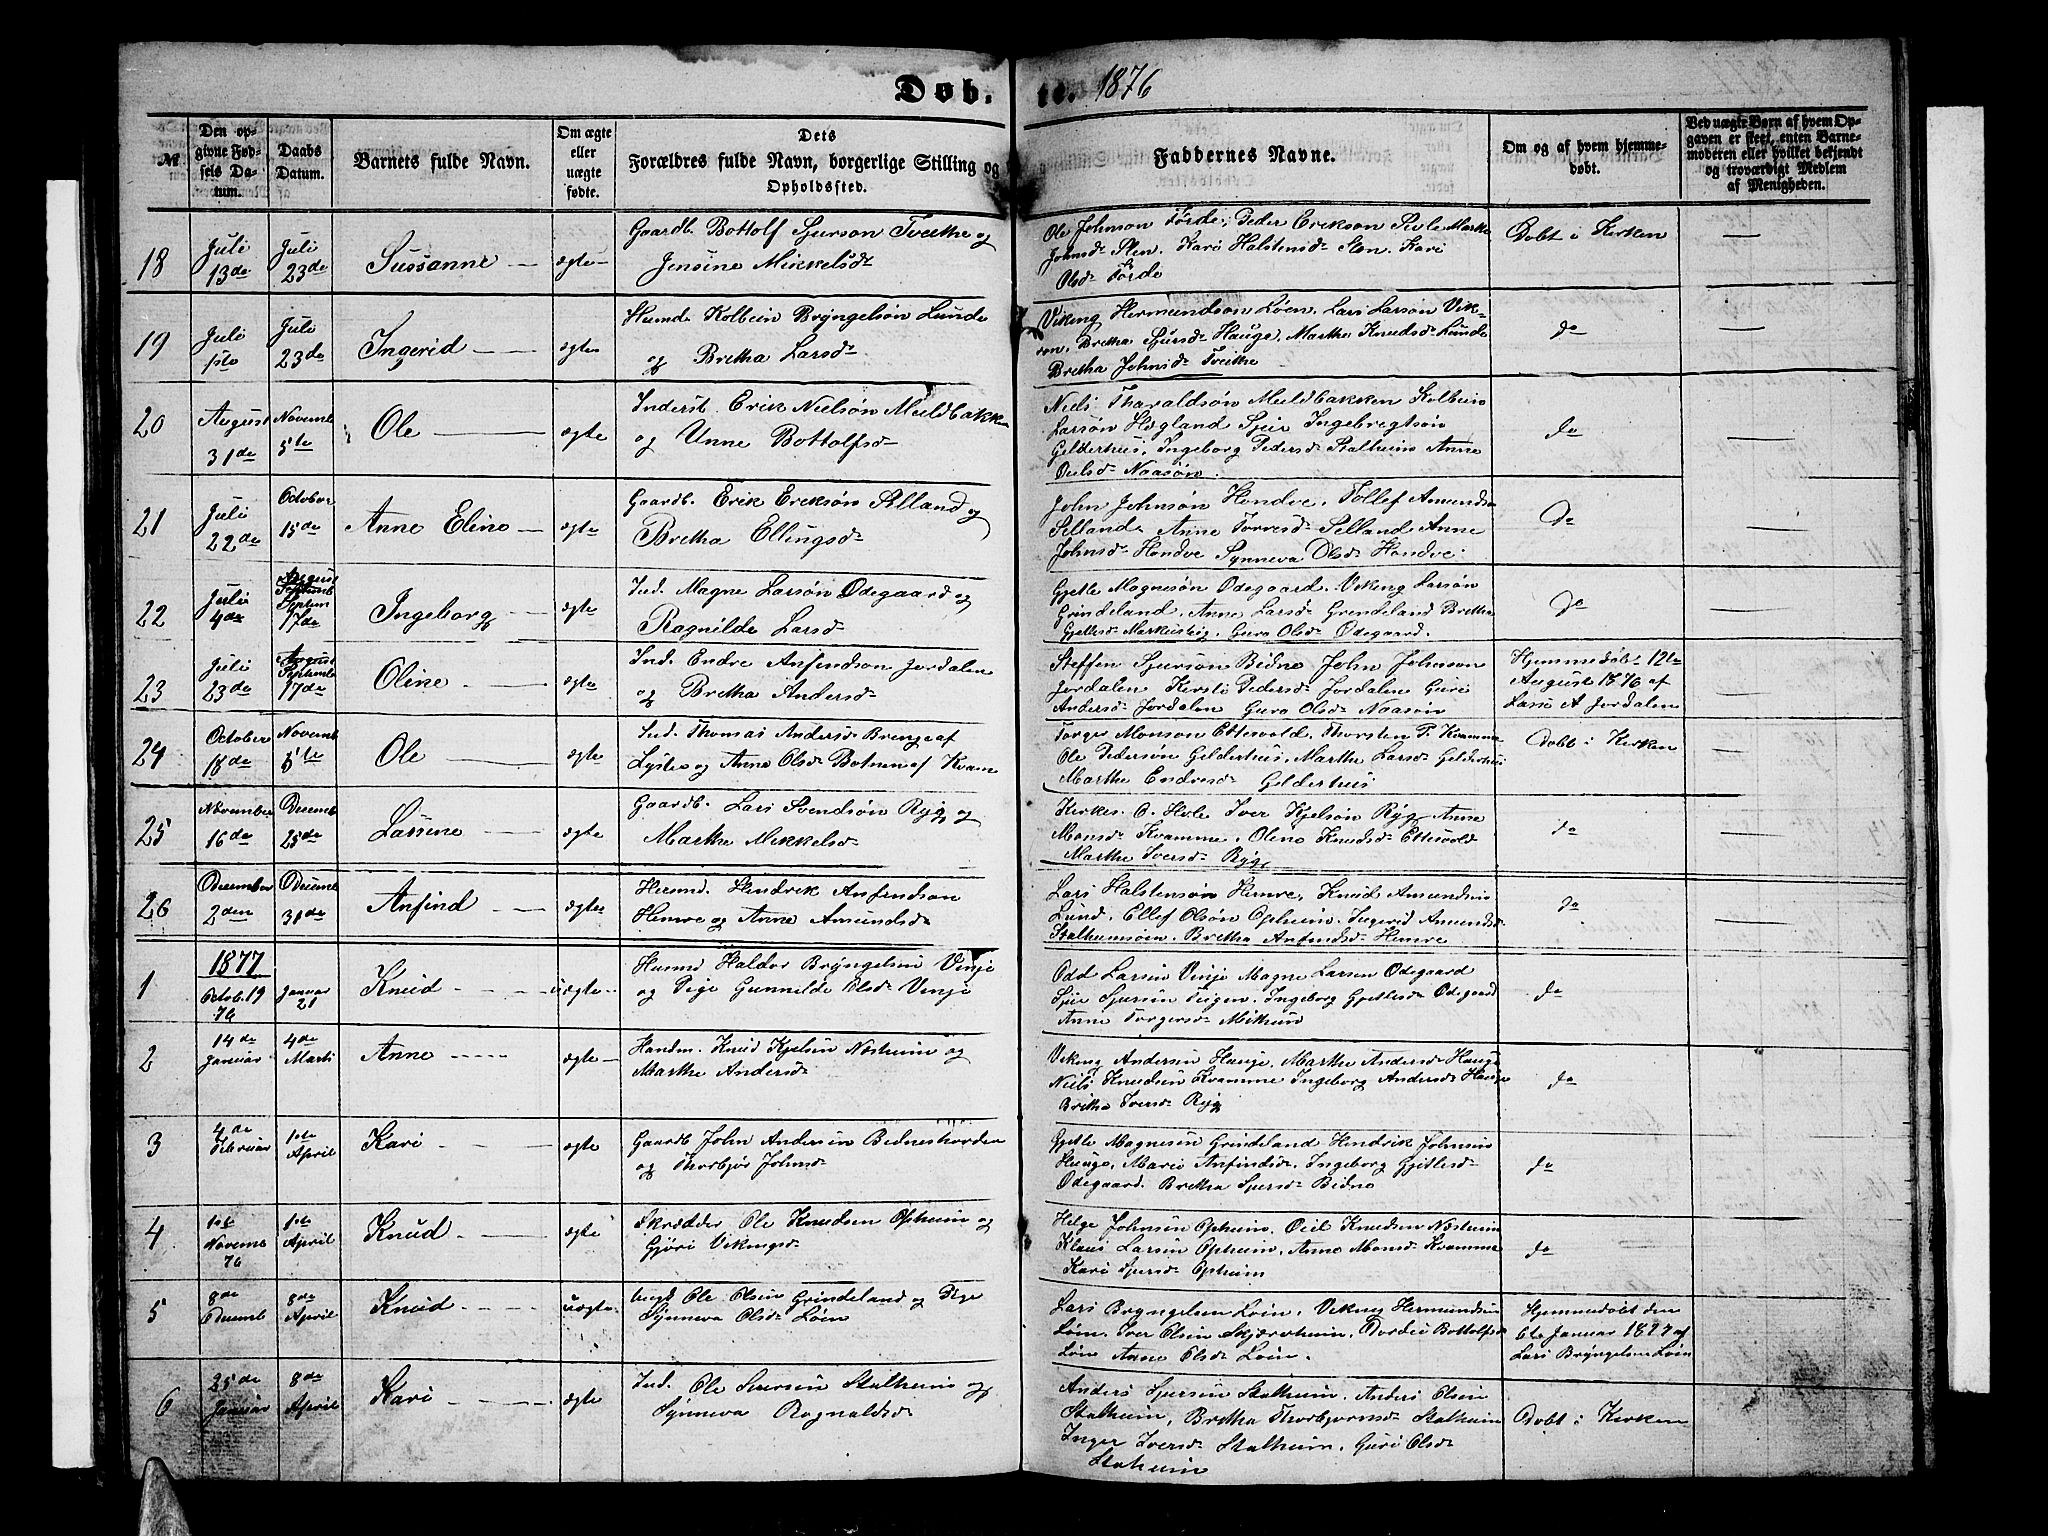 Døb-
te. 1876
№
Den op-
givne Fød-
sels Da-
tum.
Daabs
Datum.
Barnets fulde Navn.
Om ægte
eller
uægte
fødte.
Dets
Forældres fulde Navn, borgerlige Stilling og
Opholdssted.
Faddernes Navne.
Om og af hvem hjemme-
døbt.
Ved uægte Børn af hvem Op-
gaven er skeet, enten Barne-
moderen eller hvilket bekjendt
og troværdigt Medlem
af Menigheden.
18
Juli
13de
Juli
23de
Sussanne
ægte
Gaardb. Bottolf Sjurson Tveithe og
Jensine Mikkelsdr
Ole Johnson Førde, Peder Erikson Marthe
Johnsdr Slen. Kari Halstensdr Sten. Kari
Olsdr Førde
Døbt i Kirken
19
Juli
1ste
Juli
23de
Ingerid
ægte
Husmd. Kolbein Bryngelsøn Lunde
og Bretha Larsdr
Viking Hermundson Løen, Lars Larson Vik-
Bretha Sjursdr Hauge, Marthe Knudsdr Lunde
Bretha Johnsdr Tveithe
do
20
August
31de
Novembr
5te
Ole
ægte
Inderst. Erik Nielsøn Muldbakken
og Unne Bottolfsdr
Niels Tharaldsøn Muldbakken Kolbein
Larsøn Høgland Sjur Ingebregtsøn
Gelderhus, Ingeborg Pedersdr Stalheim Anne
Naasøn.
do
21
Juli
22de
October
15de
Anne Eline
ægte
Gaardb. Erik Eriksøn Selland og
Bretha Ellingsdr
John Johnsøn Hondve. Tollef Amundsøn
Selland Anne Torresdr Selland Anne
Johnsdr Hondve Synneva Olsdr Hondve
do
22
Juli
4de
August
Septem
17de
Ingeborg
ægte
Ind. Magne Larsøn Ødegaard og
Ragnilde Larsdr
Gjetle Magnesøn Ødegaard. Viking Larsøn
Grindeland, Anne Larsdr Grendeland Bretha
Gjetlesdr Markusteig, Guro Olsdr Ødegaard.
do
23
Juli
23de
August
Septembr
17de
Oline
ægte
Ind. Endre Anfindson Jordalen
og Bretha Andersdr
Steffen Sjursøn Bidne John Johnson
Jordalen Kersti Pedersdr Jordalen Guri
Andersdr Jordalen Guro Olsdr Naasøn
Hjemmedøbt 12te
August 1876 af
Lars A Jordalen
24
October
18de
Novembr
5te
Ole
ægte
Ind. Thomas Andersdr Brenge af
Lyster og Anne Olsdr Botnen af Kvam
Torger Monson Ettesvold, Thorsten P. Kvamme
Ole Pedersøn Gelderhus, Marthe Larsdr Gelderhus
Marthe Endresdr Gelderhus
Døbt i Kirken
25
November
16de
Decemb
25de
Lassine
ægte
Gaardb. Lars Svendsøn Ryg og
Marthe Mikkelsdr
Kirkes. O. Hole Iver Kjelsøn Ryg Anne
Monsdr Kvamme, Oline Knudsdr Ettesvold
Marthe Iversdr Ryg
do
26
December
2den
Decemb
31de
Anfind
ægte
Husmd. Hendrik Anfindson
Hemre og Anne Amundsdr
Lars Halstensøn Hemre, Knud Amundsøn
Lund. Ellef Olsøn Opheim. Ingerid Amundsdr
Stalheimsøen. Bretha Anfindsdr Hemre
do
1
1877
Octob. 19
76
Januar
21
Knud
uægte
Husmd Haldor Bryngelsen Vinje
og Pige Gunnilde Olsdr Vinje
Odd Larsen Vinje Magne Larsen Ødegaard
Sjur Sjursen Teigen. Ingeborg Gjetlesdr Ødegaard
Anne Torgersdr
do
2
14de
Januar
4de
Marts
Anne
ægte
Handm. Knud Kjelsen Nesheim og
Marthe Andersdr
Viking Andersen Hauge, Marthe Andersdr Hauge
Niels Knudsen Kvamme Ingeborg Andersdr Hauge
Britha Iversdr Ryg
do
3
4de
Februar
1ste
April
Kari
ægte
Gaardb John Andersen Bidneshorden
og Thorbjør Johnsdr
Gjetle Magnesen Grindeland Hendrik Johnsen
Hauge, Mari Anfindsdr, Ingeborg Gjetlesdr
Ødegaard. Bretha Sjursdr Bidne
do
4
1ste
Novemb
76
1ste
April
Knud
ægte
Skrædder Ole Knudsen Opheim og
Gjøri Vikingsdr
Helge Johnsen Opheim. Knudsen Nesheim
Klaus Larsen Opheim, Anne Monsdr Kvamme
Kari Sjursdr Opheim
do
5
8de
Decemb
8de
April
Knud
uægte
Ungk Ole Olsen Grindeland og Pige
Synneva Olsdr Løen
Lars Bryngelsen Løen. Viking Hermundsen
Løen. Iver Olsen Skjerveheim. Dordei Bottolfsdr
Løn Anne Olsdr Løen.
Hjemmedøbt den
6te Januar 1877 af
Lars Bryngelsen Løen
6
25de
Januar
8de
April
Kari
ægte
Ind. Ole Iversen Stalheim og
Synneva Ragnaldsdr
Anders Sjursen Stalheim. Anders Olsen
Stalheim, Bretha Thorbjørnsdr Stalheim
Inger Iversdr Stalheim. Guri Olsdr
Stalheim
Døbt i Kirken